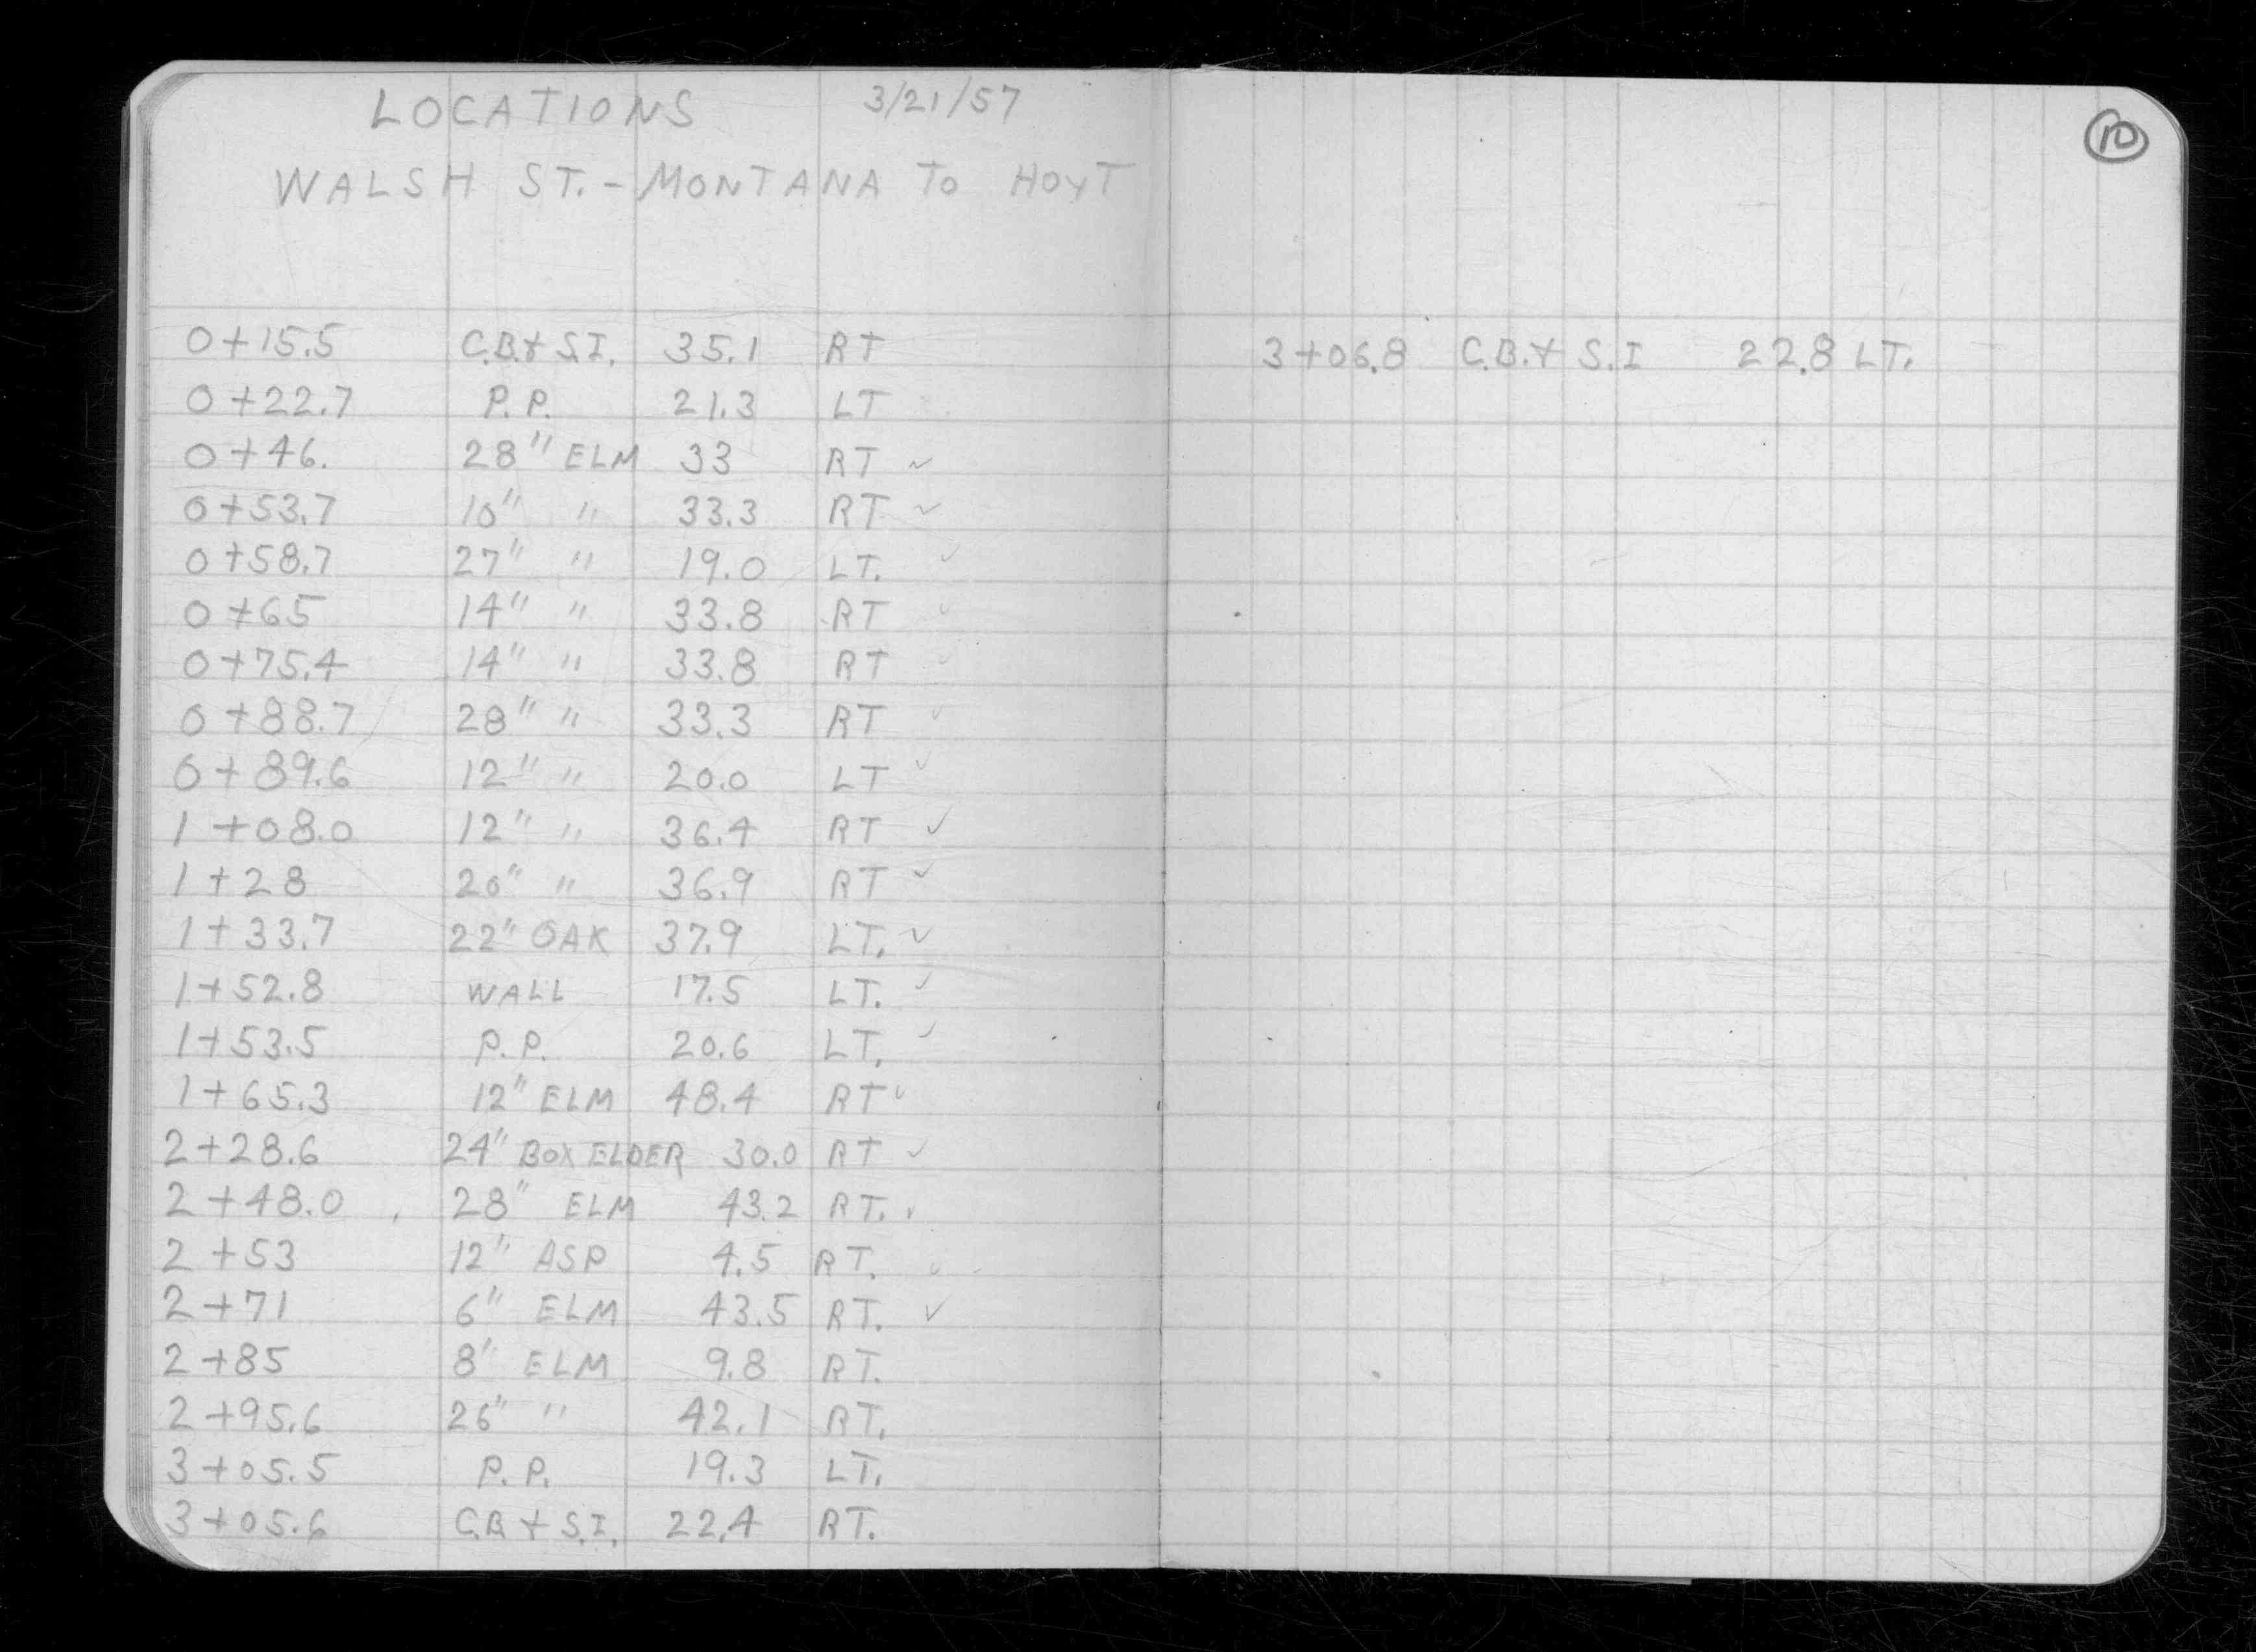 LOCATIONS 3/21/57
WALSH ST. - MONTANA TO HOYT
0+15.5 C.B.+ S.I. 35.1 RT
0+22.7 P.P. 21.3 LT
0+46. 28" ELM 33 RT ✓
0+53.7 10" " 33.3 RT ✓
0+58.7 27" " 19.0 LT. ✓
0+65 14" " 33.8 RT ✓
0+75.4 14" " 33.8 RT ✓
0+88.7 28" " 33.3 RT ✓
0+89.6 12" " 20.0 LT ✓
1+08.0 12" " 36.4 RT ✓
1+28 20" " 36.9 RT ✓
1+33.7 22" OAK 37.9 LT. ✓
1+52.8 WALL 17.5 LT. ✓
1+53.5 P.P. 20.6 LT. ✓
1+65.3 12" ELM 48.4 RT ✓
2+28.6 24" BOX ELDER 30.0 RT ✓
2+48.0 28" ELM 43.2 RT.
2+53 12" ASP 4.5 RT. ✓
2+71 6" ELM 43.5 RT. ✓
2+85 8" ELM 9.8 RT.
2+95.6 26" " 42.1 RT.
3+05.5 P.P. 19.3 LT.
3+05.6 C.B + S.I. 22.4 RT.
10
3+06.8 C.B.+ S.I 22.8 LT.